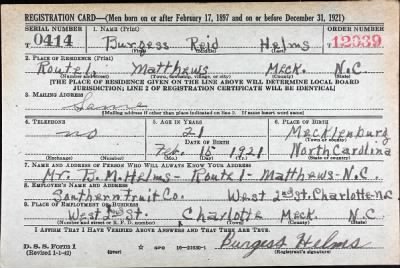 REGISTRATION CARD—(Men born on or after February 17, 1897 and on or before December 31, 1921)
SERIAL NUMBER 1. NAME (Print) ORDER NUMBER
T 0414 Burgess Reid Helms 12039
(First) (Middle) (Last)
2. PLACE OF RESIDENCE (Print)
Route 1. Matthews Meck. N.C.
(Number and street) (Town, township, village, or city) (County) (State)
[THE PLACE OF RESIDENCE GIVEN ON THE LINE ABOVE WILL DETERMINE LOCAL BOARD
JURISDICTION; LINE 2 OF REGISTRATION CERTIFICATE WILL BE IDENTICAL]
3. MAILING ADDRESS
Same
[Mailing address if other than place indicated on line 2. If same insert word same]
4. TELEPHONE 5. AGE IN YEARS 6. PLACE OF BIRTH
no 21 Mecklenburg
DATE OF BIRTH (Town or county)
Feb. 15 1921 North Carolina
(Exchange) (Number) (Mo.) (Day) (Yr.) (State or country)
7. NAME AND ADDRESS OF PERSON WHO WILL ALWAYS KNOW YOUR ADDRESS
Mr. B. M. Helms - Route 1 - Matthews - N.C.
8. EMPLOYER'S NAME AND ADDRESS
Southern Fruit Co. West 2nd St. Charlotte - N.C
9. PLACE OF EMPLOYMENT OR BUSINESS
West 2nd St. Charlotte Meck. N.C
(Number and street or R. F. D. number) (Town) (County) (State)
I AFFIRM THAT I HAVE VERIFIED ABOVE ANSWERS AND THAT THEY ARE TRUE.
D. S. S. Form 1 Burgess Helms
(Revised 1-1-42) (over) GPO (Registrant's signature)